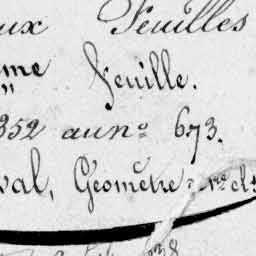 ux Feuilles
me feuille.
352 au no 673.
val, Géomètre 1re cl